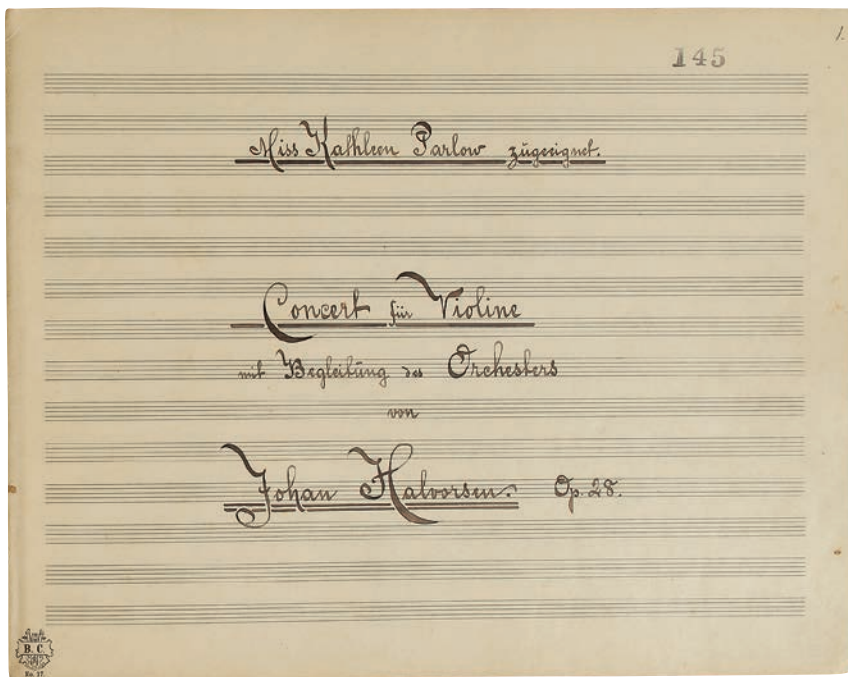 1.
145
Miss Kathleen Parlow zugeeignet.
Concert für Violine
mit Begleitung des Orchesters
von
Johan Halvorsen. Op. 28.
B. C.
No. 17.